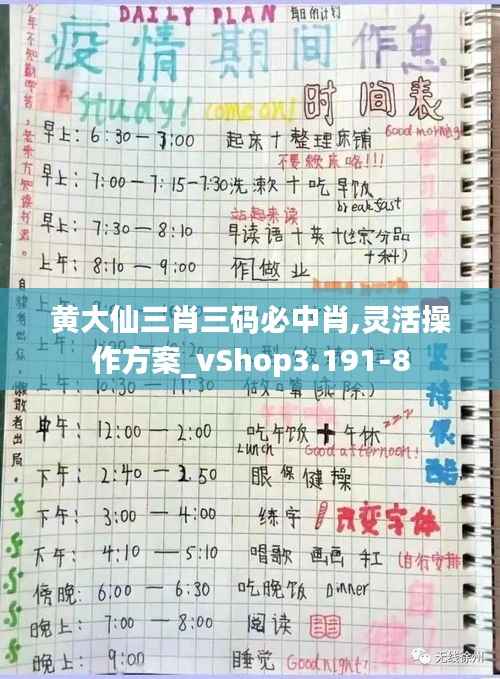 DAILY PLAN 每日的计划
疫情期间作息
study! come on! 时间表
早上: 6:30—7:00 起床+整理床铺 Good morning
不要赖床咯!!!
早上: 7:00—7:15-7:30 洗漱+吃早饭
breakfast
站起来读
早上: 7:30—8:10 早读语+英+
上午: 8:10—9:00 作业
home work
黄大仙三肖三码必中肖,灵活操
作方案_vShop3.191-8
中午: 12:00—2:00 吃午饭+午休 zzz
Lunch Good afternoon!
下午: 2:40—2:50 眼保健操
下午: 3:00—4:00 练字 改变字体
下午: 4:10—5:10 唱歌 画画 (自行安排)
傍晚: 6:00—6:30 吃晚饭 Dinner
晚上: 7:00—8:00 阅读
晚上: 9:00 睡觉 Good night!
坚持很酷
无线徐州